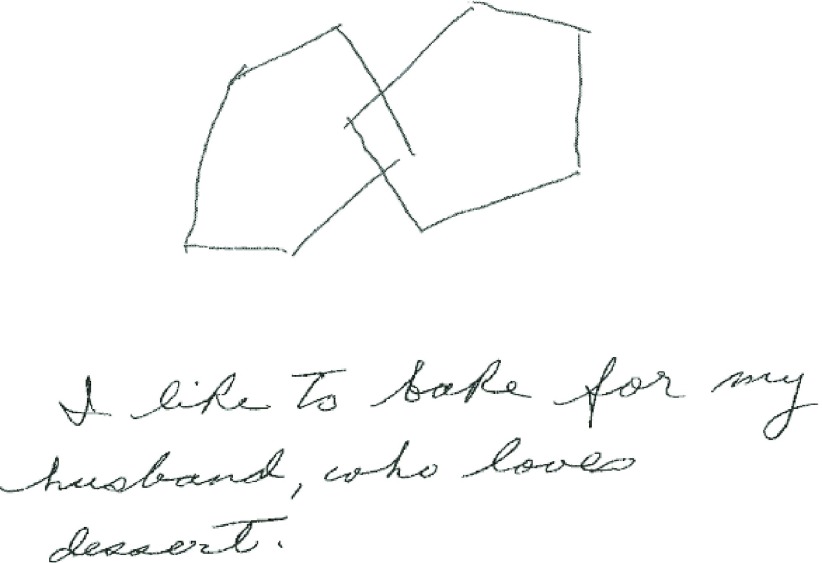 I like to bake for my
husband, who loves
dessert.